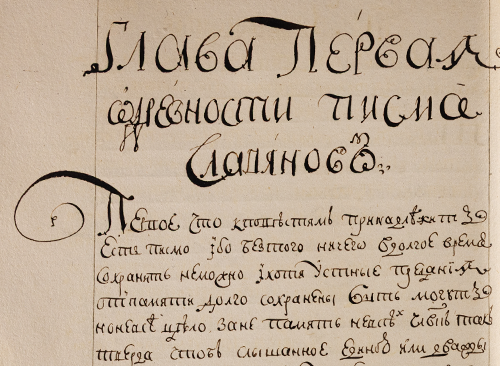 Глава Первая
ѡдревности писма
Славяновъ.
Первое что кповѣстямъ принадлѣжитъ
Есть писмо ібо безтого ничего вдолгое время
сохранить неможно іхотя устные преданїя
отпамяти долго сохранены быть могутъ
ноневсѣ цѣло. зане память невсѣхъ такъ
тверда чтобъ слышанное единою или дважды